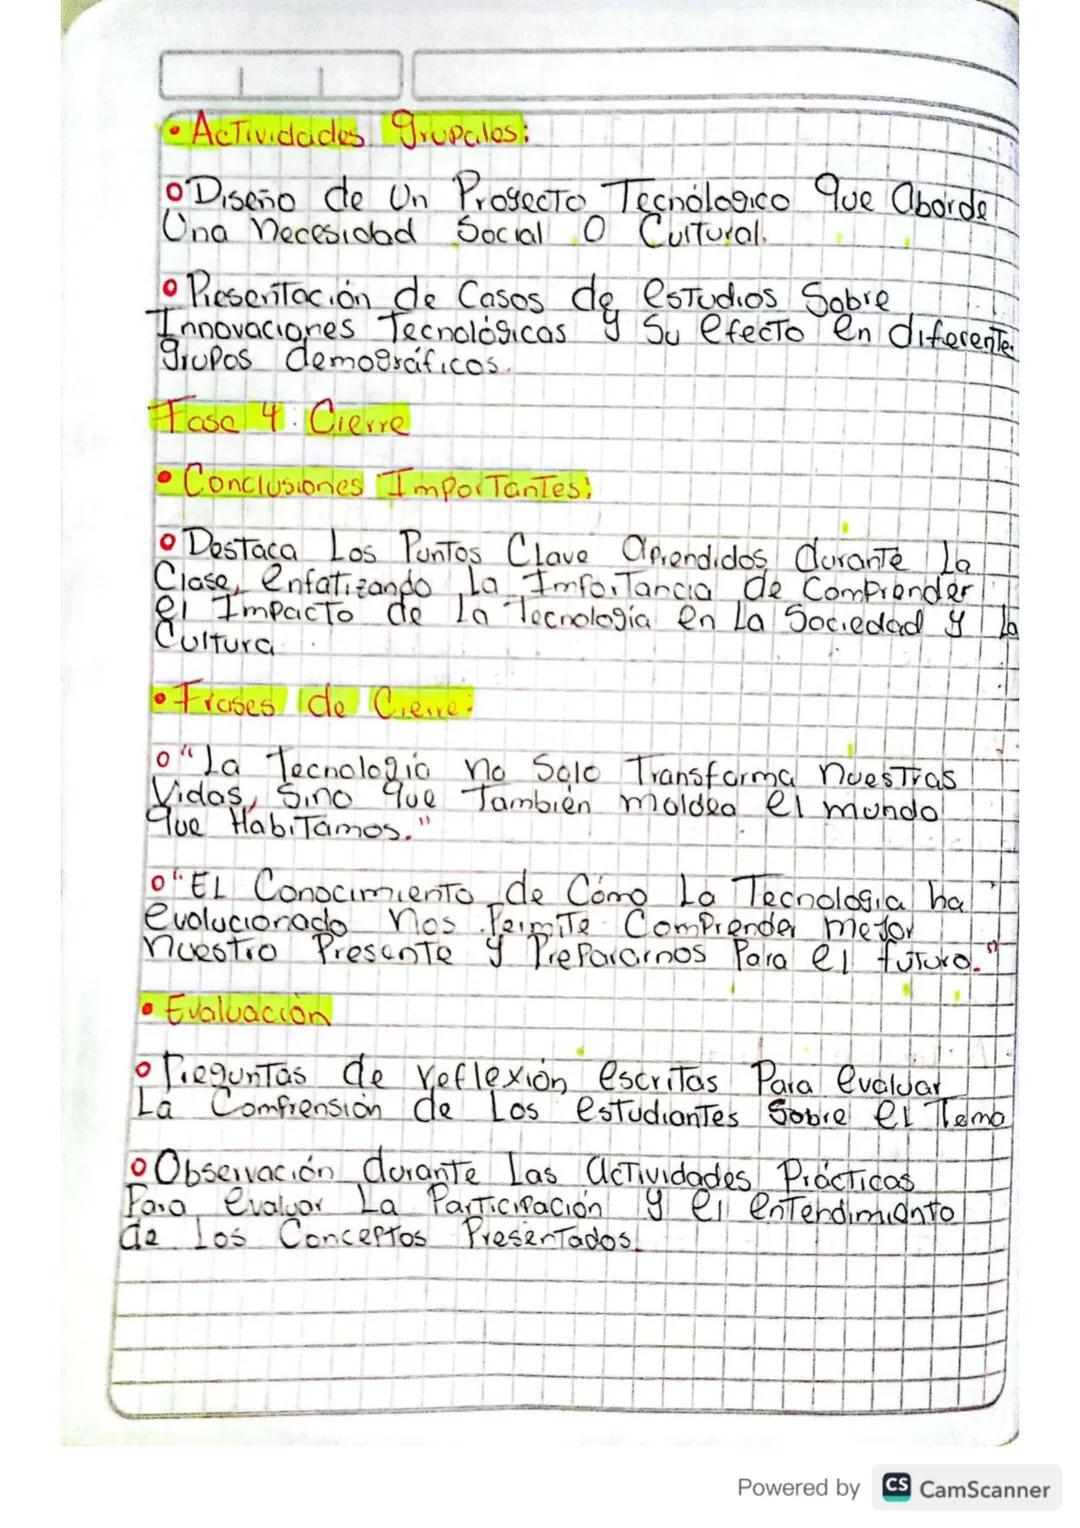 • Actividades grupales:
o Diseño de Un Proyecto Tecnólogico que aborde
Una necesidad Social o Cultural.
o Presentación de Casos de estudios Sobre
Innovaciones Tecnológicas y Su efecto en diferente
grupos demográficos.
Fase 4: Cierre
• Conclusiones Importantes:
o Destaca Los Puntos Clave aprendidos durante La
Clase, enfatizando La Importancia de Comprender
el Impacto de La Tecnología en La Sociedad y la
Cultura
• Frases de Cierre:
o "La Tecnologia no Solo Transforma nuestras
Vidas, Sino que También moldea el mundo
que Habitamos."
o "EL Conocimiento de Cómo La Tecnologia ha
evolucionado nos Permite Comprender mejor
nuestro Presente y Prepararnos Para el futuro."
• Evaluación
o Preguntas de reflexión escritas Para evaluar
La Comprensión de Los estudiantes Sobre el Tema
o Observación durante Las actividades Prácticas
Para evaluar La Participación y el entendimiento
de los Conceptos Presentados.
Powered by CS CamScanner